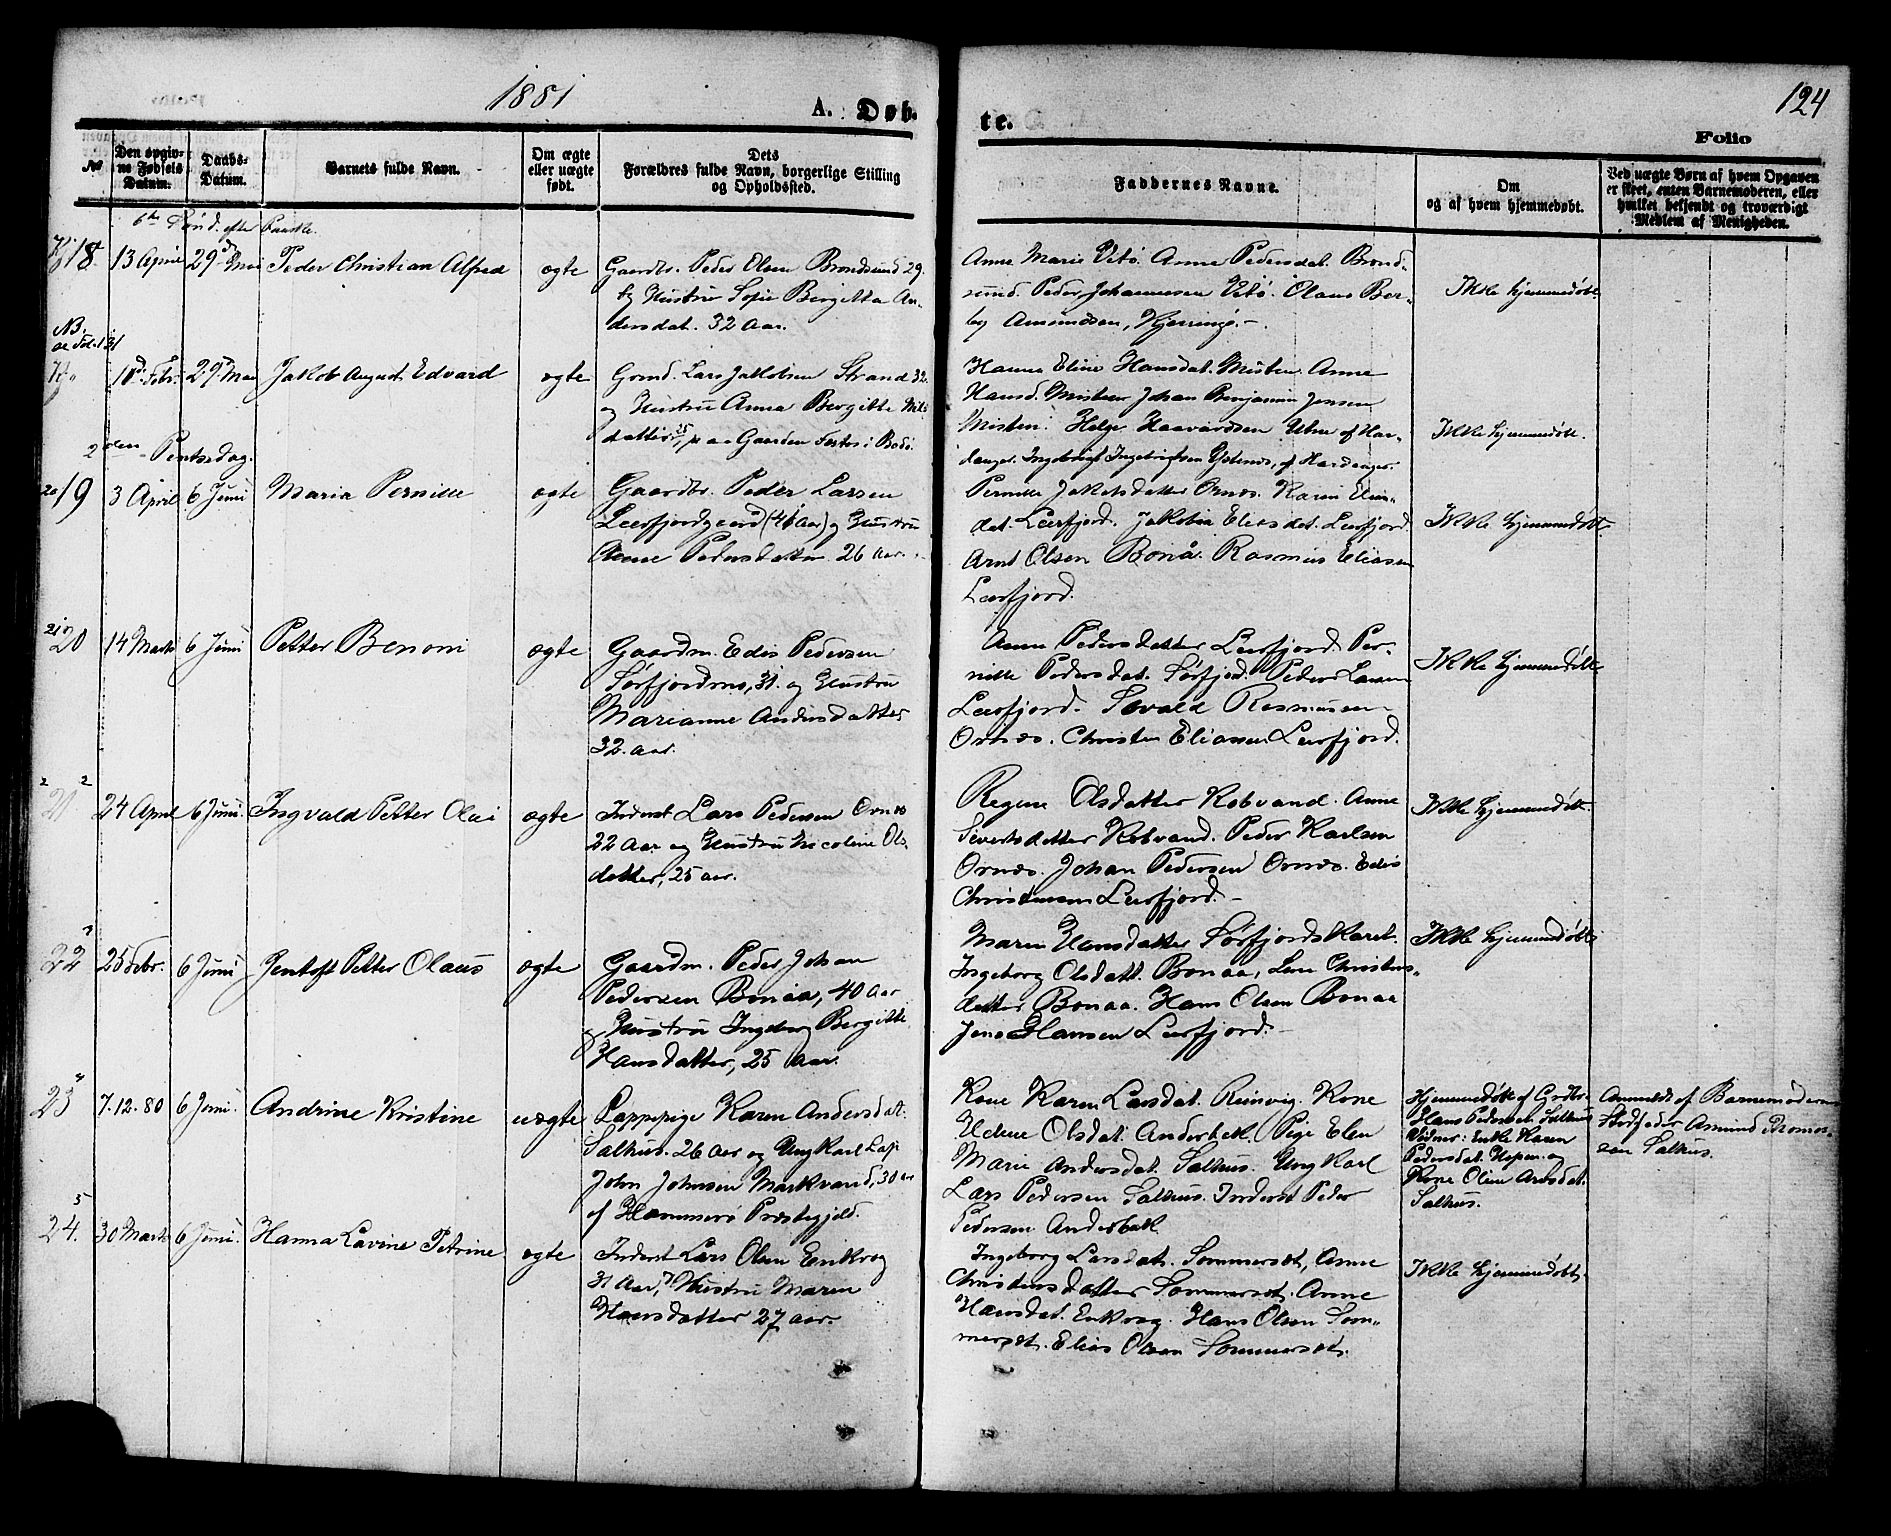 1881
A. Døb-
te.
124
Folio
№
Den opgiv-
ne Fødsels
Datum.
Daabs-
Datum.
Barnets fulde Navn.
Om ægte
eller uægte
født.
Dets
Forældres fulde Navn, borgerlige Stilling
og Opholdssted.
Faddernes Navne.
Om
og af hvem hjemmedøbt.
Ved uægte Børn af hvem Opgaven
er skeet, enten Barnemoderen, eller
hvilket bekjendt og troværdigt
Medlem af Menigheden.
6te Sønd. efter Paaske.
18. 13 April 29de Mai Peder Christian Alfred ægte
Gaardbr. Peder Olsen Brondsund 29.
og Hustru Sofie Birgitta An-
dersdat. 32 Aar.
Anne Marie Vetø. Anne Pedersdat. Brond-
sund. Peder Johannesen Vetø. Olaus Ber-
Amundsen, Kjerringø.
Ikke hjemmedøbt
NB.
29d Mai Jakob August Edvard ægte
Gmd. Lars Jakobsen Strand 32.
og Hustru Anna Bergitte Nils
datter 25, p aa Gaarden i Bodø.
Hanna Eline Hansdat. Misten. Anne
Hansd. Misten Johan Benjamin Jensen
Misten. Helge Haavardsen Utne af Har-
danger. Ingebrigt Ingebrigtsen af Hardanger.
Ikke hjemmedøbt.
2den Pintsedag.
20 19 3 April 6 Juni Maria Pernille ægte
Gaardbr. Peder Larsen
Leerfjordgaard (46 Aar) og Hustru
Anne Pedersdatter 26 Aar.
Pernille Jakobsdatter Ornes. Karen Elias-
dat. Leerfjord. Jakobia Eliasdat. Leerfjord
Arnt Olsen Bonå. Rasmus Eliasen
Leerfjord.
Ikke hjemmedøbt
21 20 14 Marts 6 Juni Petter Benoni ægte
Gaardm. Edis Pedersen
Sørfjordmo, 31. og Hustru
Marianne Andersdatter
32. Aar.
Anne Pedersdatter Leerfjord. Per-
nille Pedersdat. Sørfjord. Peder Larsen
Leerfjord. Sevald Rasmussen
Ornes. Christen Eliassen Leerfjord.
Ikke hjemmedøbt
2 21 2 24 April 6 Juni Ingvald Petter Olai ægte
Inderst Lars Pedersen Ornes
22 Aar og Hustru Nicoline Ols-
datter, 25 Aar.
Regine Olsdatter Kobvand. Anne
Sivertsdatter Kobvand. Peder Karlsen
Ornes. Johan Pedersen Ornes. Edis
Christensen Leerfjord.
Ikke hjemmedøbt.
22 3 25 Febr. 6 Juni Jentoft Petter Olaus ægte
Gaardm. Peder Johan
Pedersen Bonaa, 40 Aar
& Hustru Ingeborg Bergitte
Hansdatter, 25 Aar.
Maren Hansdatter Sørfjordskaret.
Ingeborg Olsdatt. Bonaa, Lene Christens-
datter Bonaa. Hans Olsen Bonaa
Jens Hansen Leerfjord.
Ikke hjemmedøbt
23 4 7.12.80 6 Juni. Andrine Kristine uægte
Lappepige Karen Andersdat.
Salhus. 26 Aar og Ungkarl Lap
John Johnsen Markvand, 30 Aar
af Hammerø Præstegjeld.
Kone Karen Larsdat. Reinvig. Kone
Helene Olsdat. Anderbak. Pige Elen
Marie Andersdat. Salhus. Ung Karl
Lars Pedersen Salhus. Inderst Peder
Pedersen Anderbak
Hjemmedøbt af Grdbr.
Hans Pedersen Salhus
Vidner: Enke Karen
Pedersdat. Hopen og
Kone Olina Arnsdat.
Salhus.
Anmeldt af Barnemoderens
Stedfader Amund
Salhus.
24. 5 30 Marts 6 Juni. Hanna Lavine Petrine ægte
Inderst Lars Olsen Enkrog
31 Aar, & Hustru Maren
Hansdatter 27 Aar.
Ingeborg Larsdat. Sommerset, Anne
Christensdatter Sommerset. Anne
Hansdat. Enkrog. Hans Olsen Som-
merset. Elias Olsen Sommerset.
Ikke hjemmedøbt.